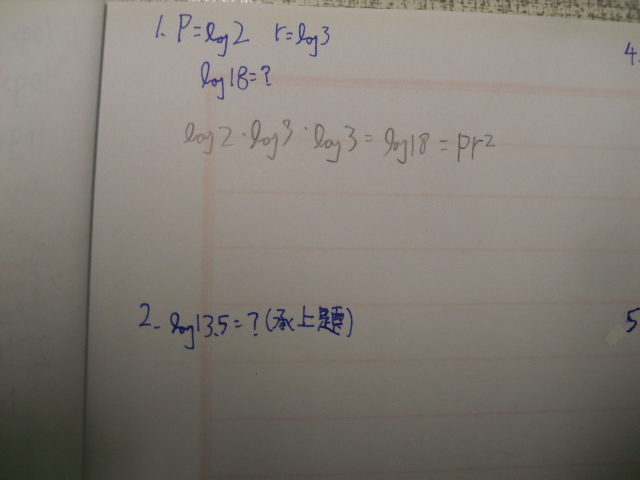 1. P=log2 r=log3
log18=?
log2·log3·log3=log18=pr²
2. log13.5=?(承上題)
4.
5